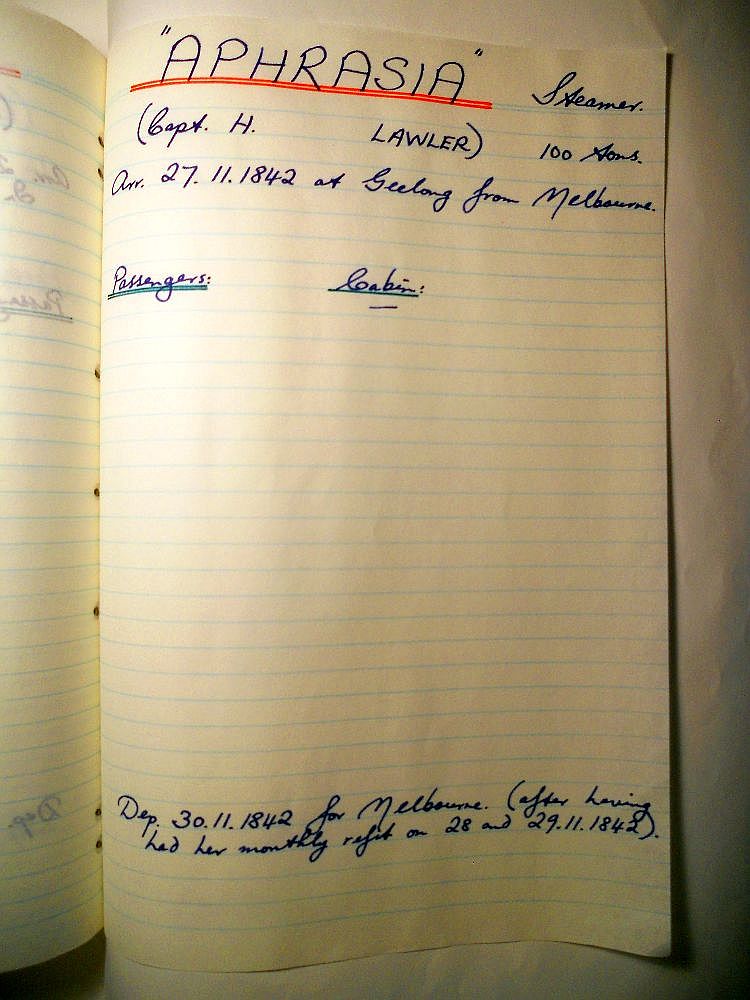 "APHRASIA" Steamer.
(Capt. H. LAWLER) 100 tons.
Arr. 27.11.1842 at Geelong from Melbourne.
Passengers: Cabin:
—
Dep. 30.11.1842 for Melbourne. (after having
had her monthly refit on 28 and 29.11.1842).